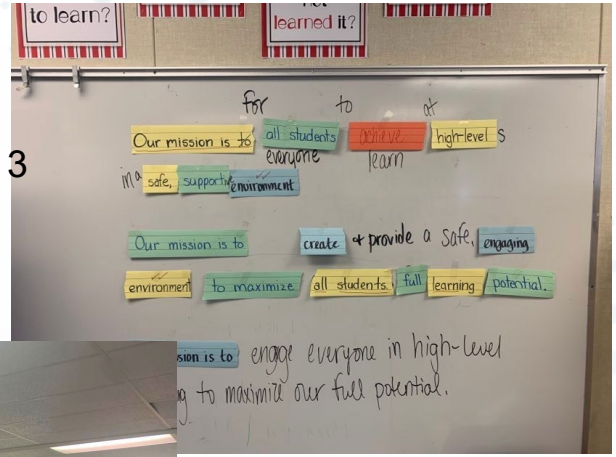 to learn?
learned it?
3
for to at
Our mission is to all students achieve high-level s
everyone learn
in a safe, supportive environment
Our mission is to create + provide a safe, engaging
environment to maximize all students full learning potential.
sion is to engage everyone in high-level
g to maximize our full potential.